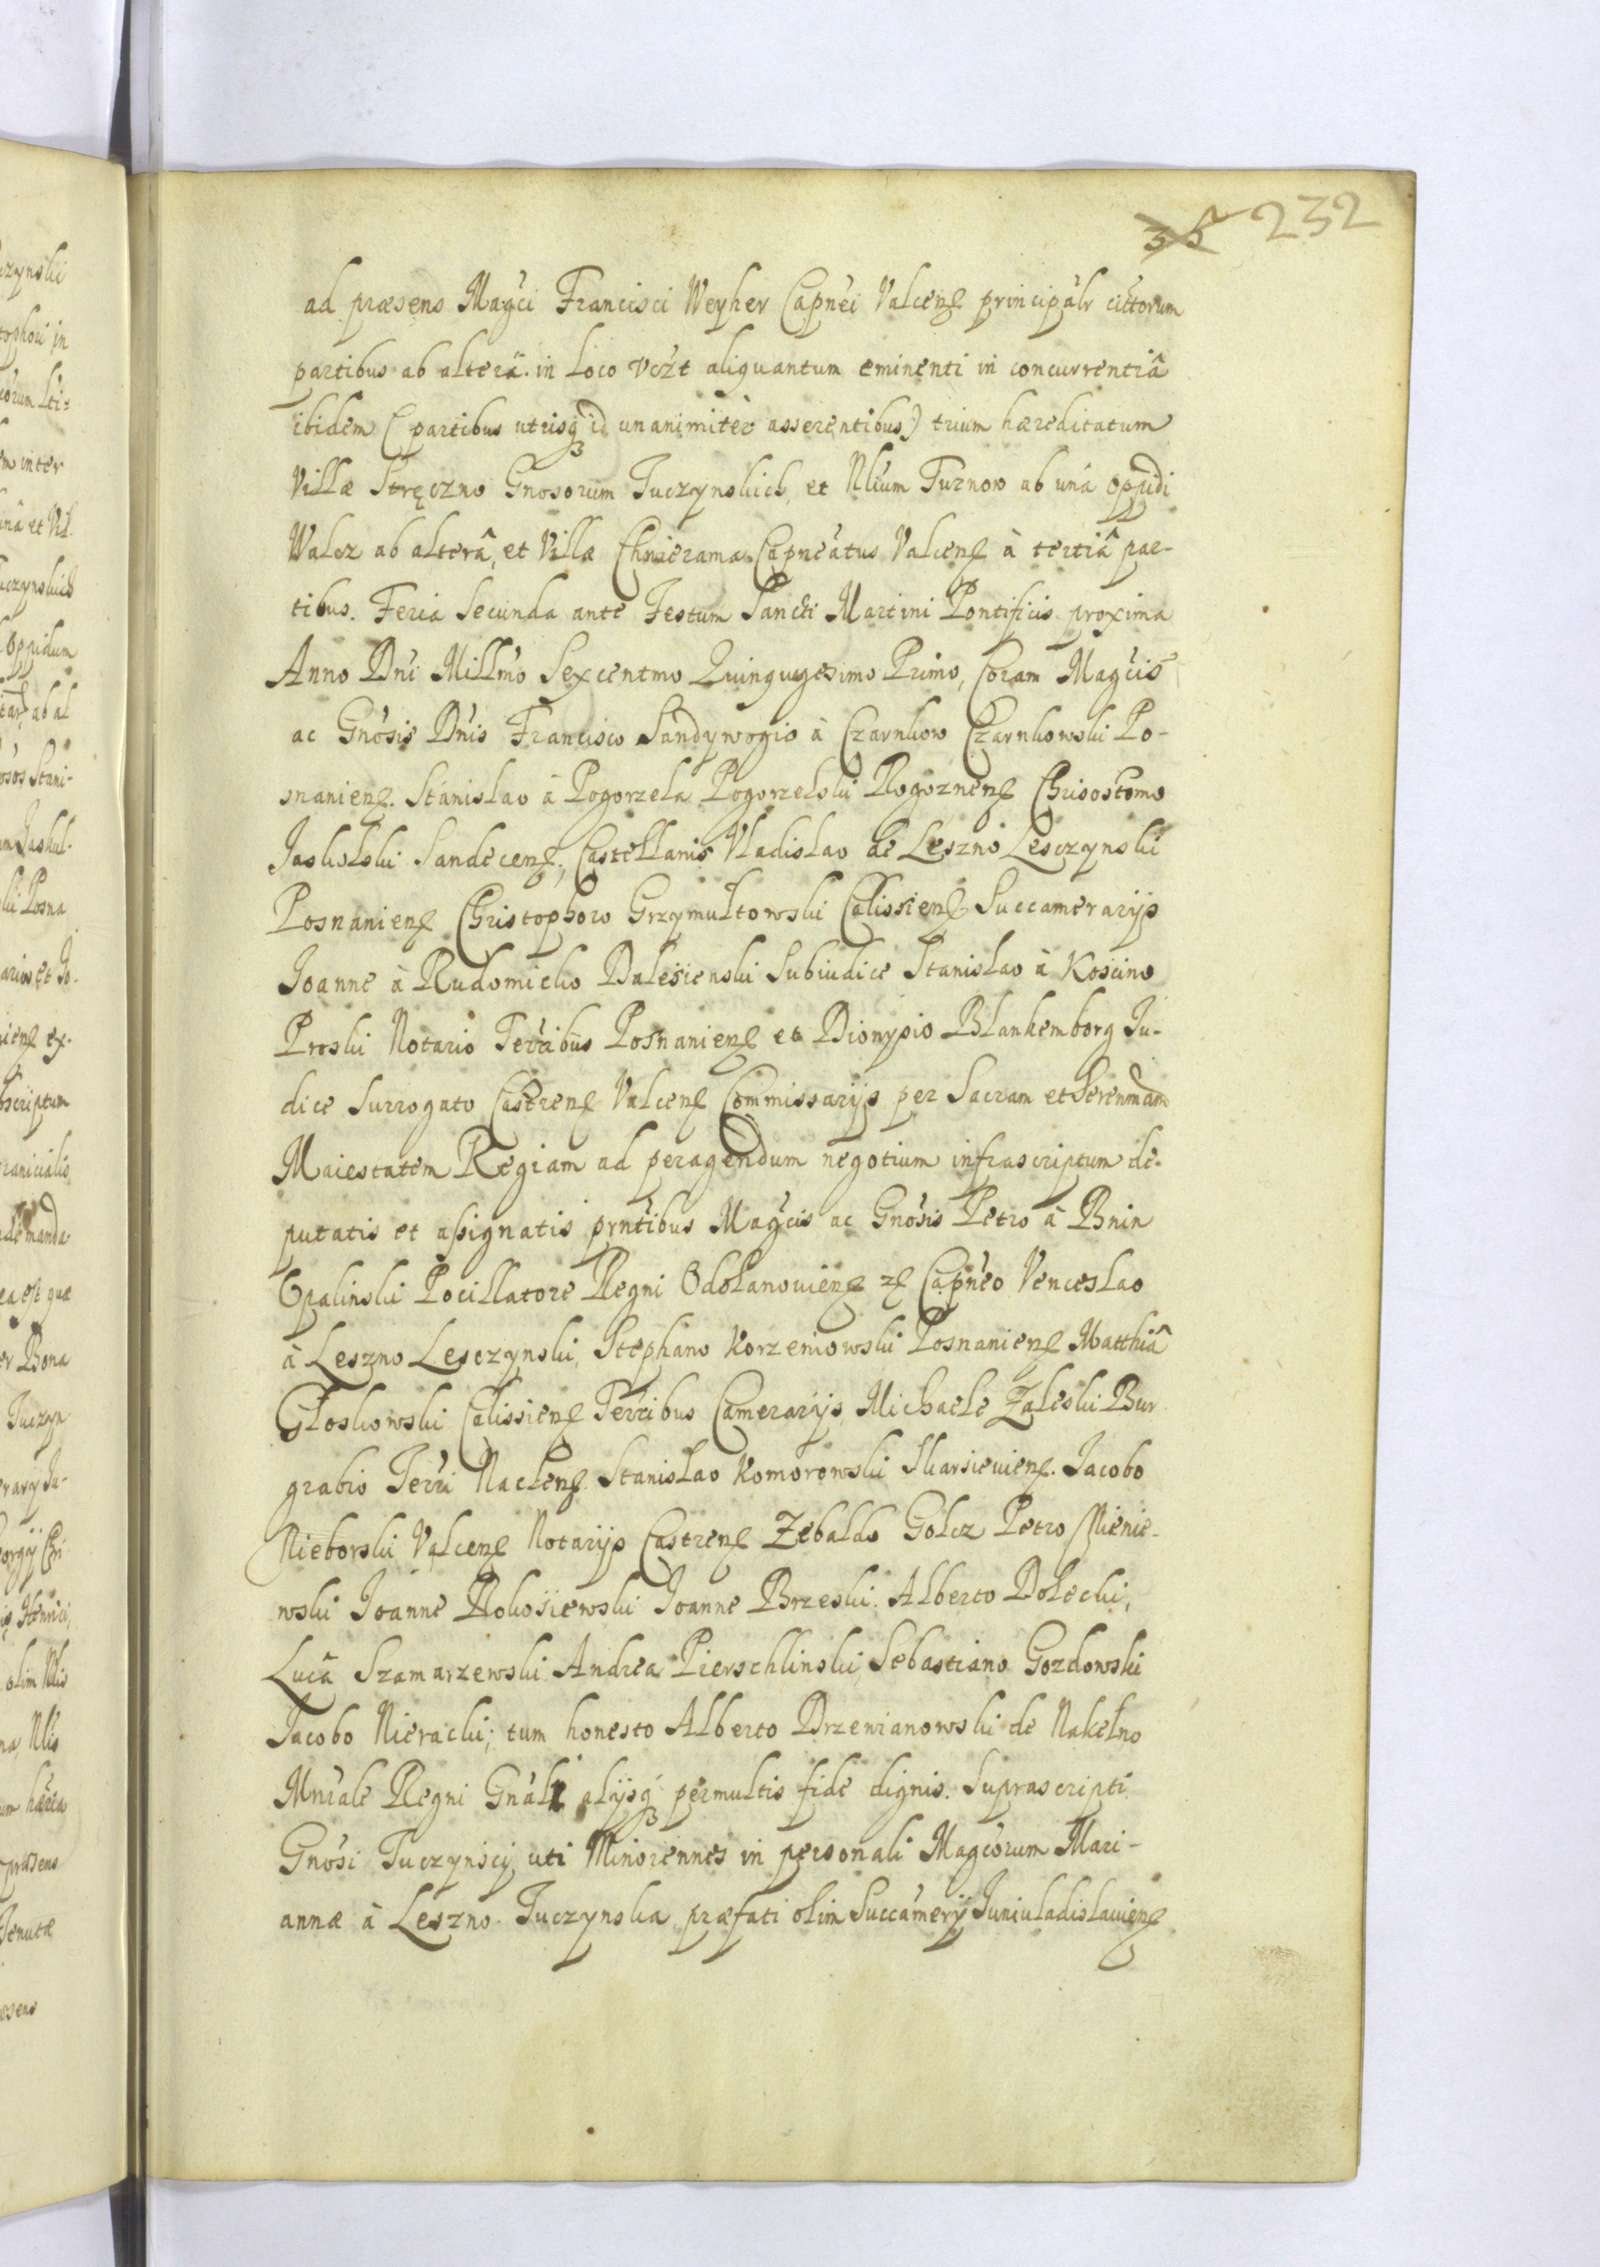 35 232
ad præsens Magci Francisci Weyher Capnei Valcens principalr cittorum
partibus ab alterâ in loco vczt aliquantum eminenti in concurrentiâ
ibidem (partibus utrisq id unanimiter asserentibus) trium hæreditatum
Villæ Stręczno Gnosorum Tuczynskich, et Nlium Turnow ab unâ oppidi
Walcz ab alterâ, et Villæ Capneatus Valcens à tertiâ par-
tibus. Feria Secunda ante Festum Sancti Martini Pontificis proxima
Anno Dni Millmo Sexcentmo Quinquagesimo Primo, Coram Magcis
ac Gnosis Dnis Francisco Sandywogio à Czarnkow Czarnkowski Po-
snaniens. Stanislao à Pogorzela Pogorzelski Rogoznens Chrisostomo
Jaskolski Sandecens, Castellanis Vladislao de Leszno Lesczynski
Posnaniens Christophoro Grzymułtowski Calissiens Succamerarijs
Joanne à Rudomicko Dalesienski Subiudice Stanislao à Koscino
Proski Notario Terribus Posnaniens et Dionysio Blankemborg Ju-
dice Surrogato Castrens Valcens Commissarijs per Sacram et Serenmam
Maiestatem Regiam ad peragendum negotium infrascriptum de-
putatis et assignatis prntibus Magcis ac Gnosis Petro à Bnin
Opalinski Pocillatore Regni Odolanoviens Capneo Venceslao
à Leszno Lesczynski, Stephano Korzeniowski Posnaniens Matthiâ
Głoskowski Calissiens Terribus Camerarijs Michaele Zaleski Bur
grabio Terri Naclens Stanislao Komorowski Skarsieviens. Jacobo
Nieborski Valcens Notarijs Castrens Zebaldo Golcz Petro Mienie-
wski Joanne Rokosiewski Joanne Brzeski. Alberto Dolecki,
Lucâ Szamarzewski Andrea Pierschlinski, Sebastiano Gozdowski
Jacobo Nieracki; tum honesto Alberto Drzenianowski de Nakełno
Mnrale Regni Gnali alijsq permultis fide dignis. Suprascripti
Gnosi Tuczynscij uti Minorennes in personali Magcorum Mari-
annæ à Leszno Tuczynska præfati olim Succamerij Juniuladislauiens